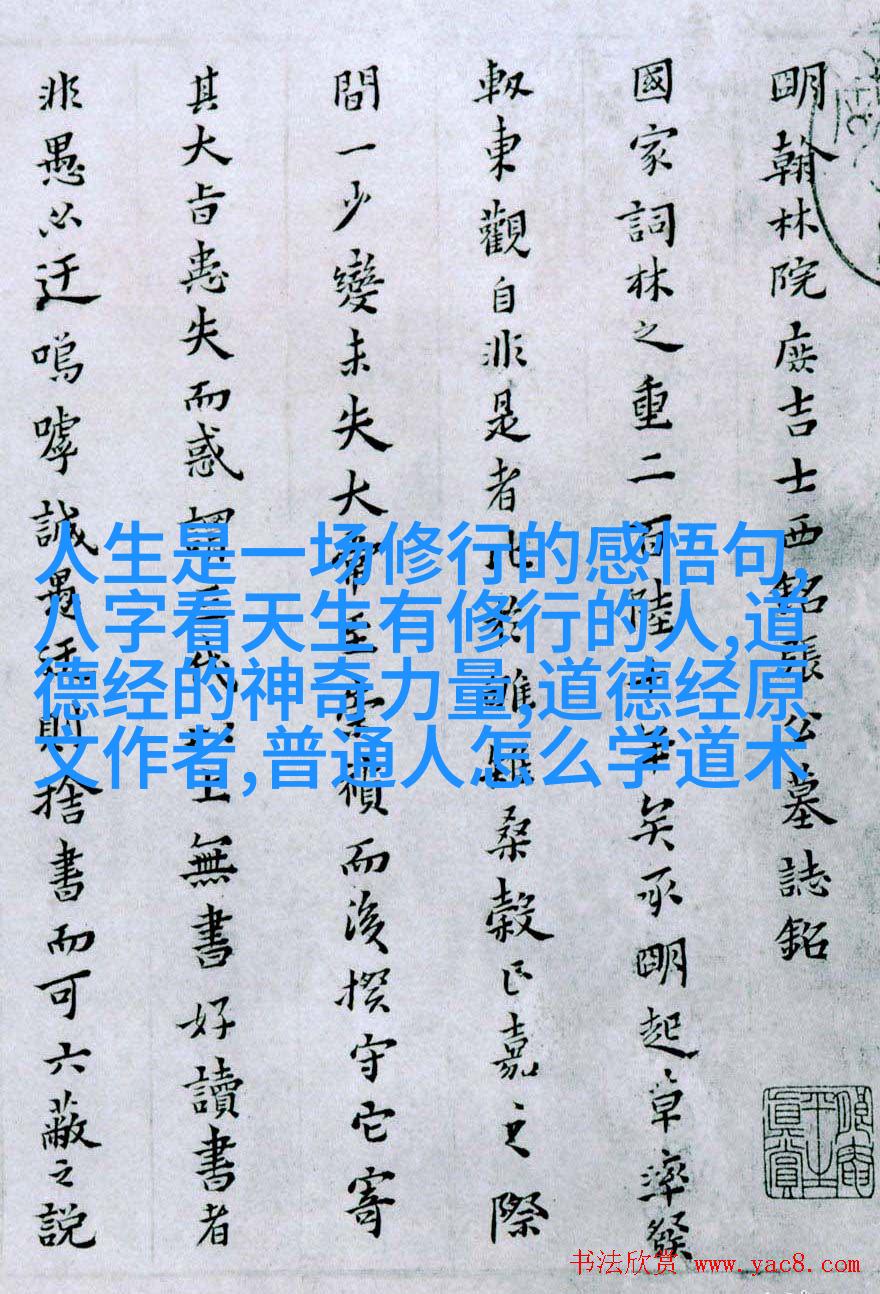 明翰林院庶吉士西銘張公墓誌銘
國家詞林之重二百陸十年矣永明起草率繇
軔東觀自非是者雖桑穀正嘉之際
間一少變未失大常積而後揆守它寄
其大旨悉失而惑謂三代以上無書好讀書者
非愚必迂嗚嘑誠愚迂則捨書而可六蔽之説
人生是一场修行的感悟句,
八字看天生有修行的人,道
德经的神奇力量,道德经原
文作者,普通人怎么学道术
书法欣赏 www.yac8.com